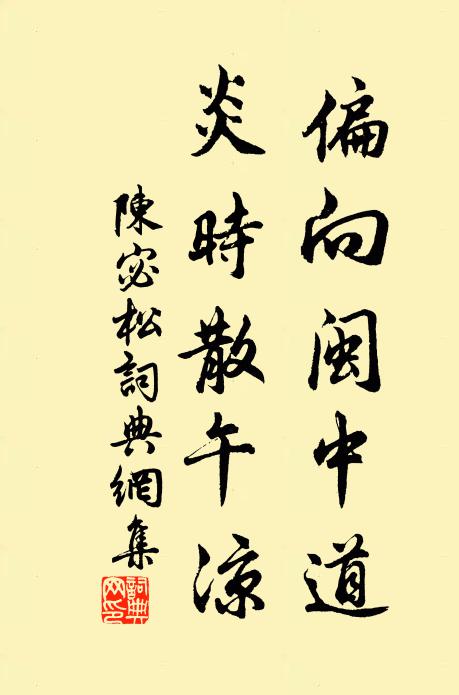 偏向閩中道
炎時散午涼
陳宓松詞典網集
詞典網印